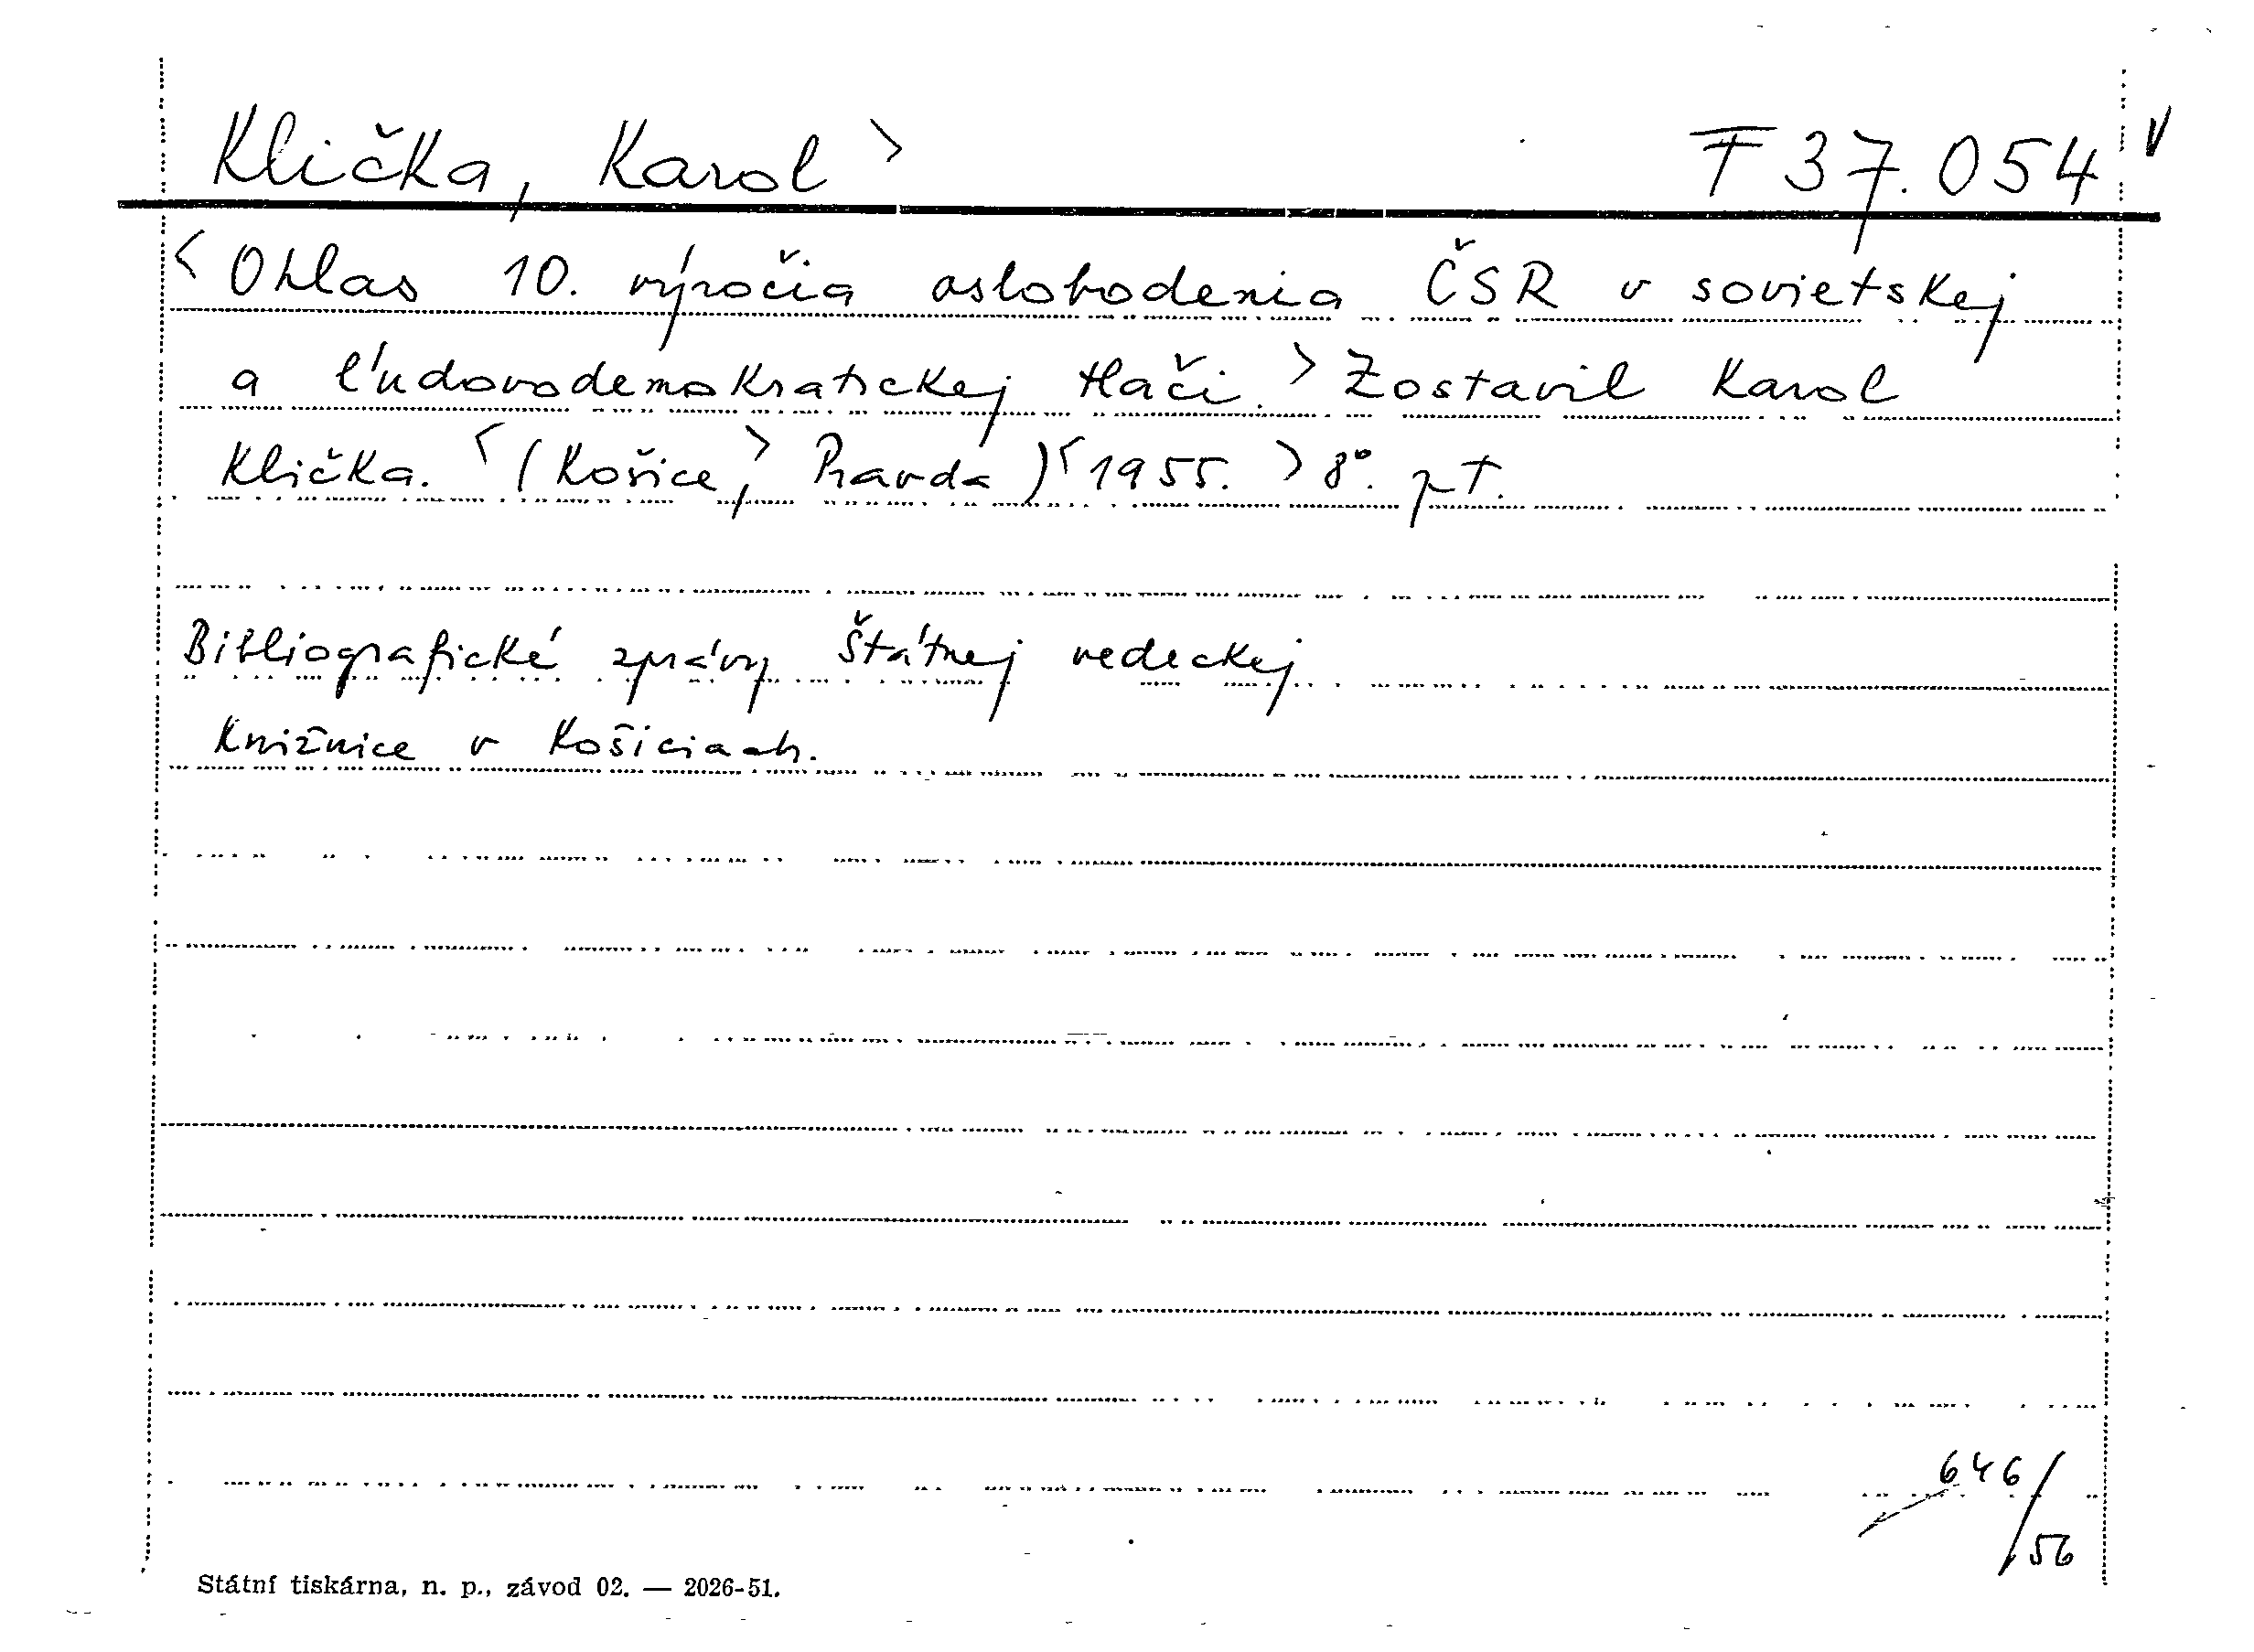 Klička, Karol > F 37.054 V
<Ohlas 10. výročia oslobodenia ČSR v sovietskej
a ľudovodemokratickej tlači.> Zostavil Karol
Klička. <(Košice,> Pravda)<1955.> 8°. pt.
Bibliografické zprávy Štátnej vedeckej
Knižnice v Košiciach.
646/56
Státní tiskárna, n. p., závod 02. — 2026-51.